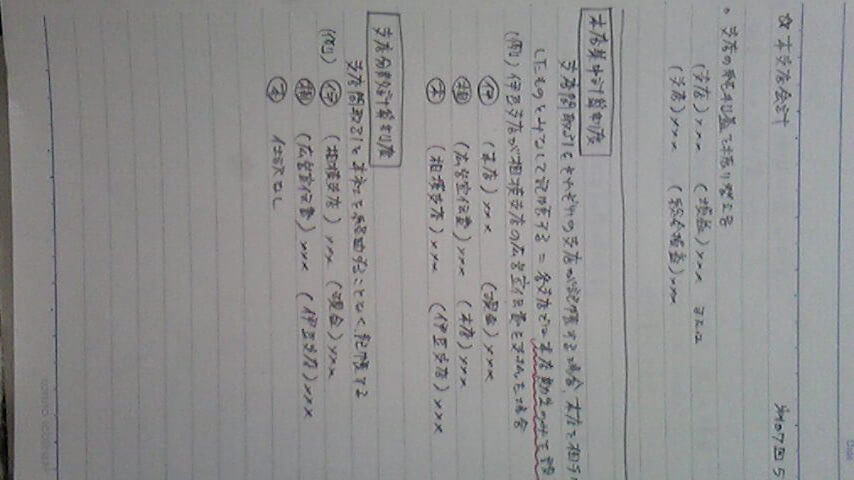 ☆ 本支店会計
第107回 5
。支店の純利益を振り替える
(支店) xxx (損益) xxx または
(支店) xxx (総合損益) xxx
本店集中計算制度
支店間取引をそれぞれの支店が記帳する場合、本店を相手
したものとみなして記帳する = 各支店では本店勘定のみを
(例) 伊豆支店が相模支店の広告宣伝費を支払った場合
伊 (本店) xxx (現金) xxx
相 (広告宣伝費) xxx (本店) xxx
本 (相模支店) xxx (伊豆支店) xxx
支店分散計算制度
支店間取引を本店を経由することなく記帳する
(例) 伊 (相模支店) xxx (現金) xxx
相 (広告宣伝費) xxx (伊豆支店) xxx
本 仕訳なし